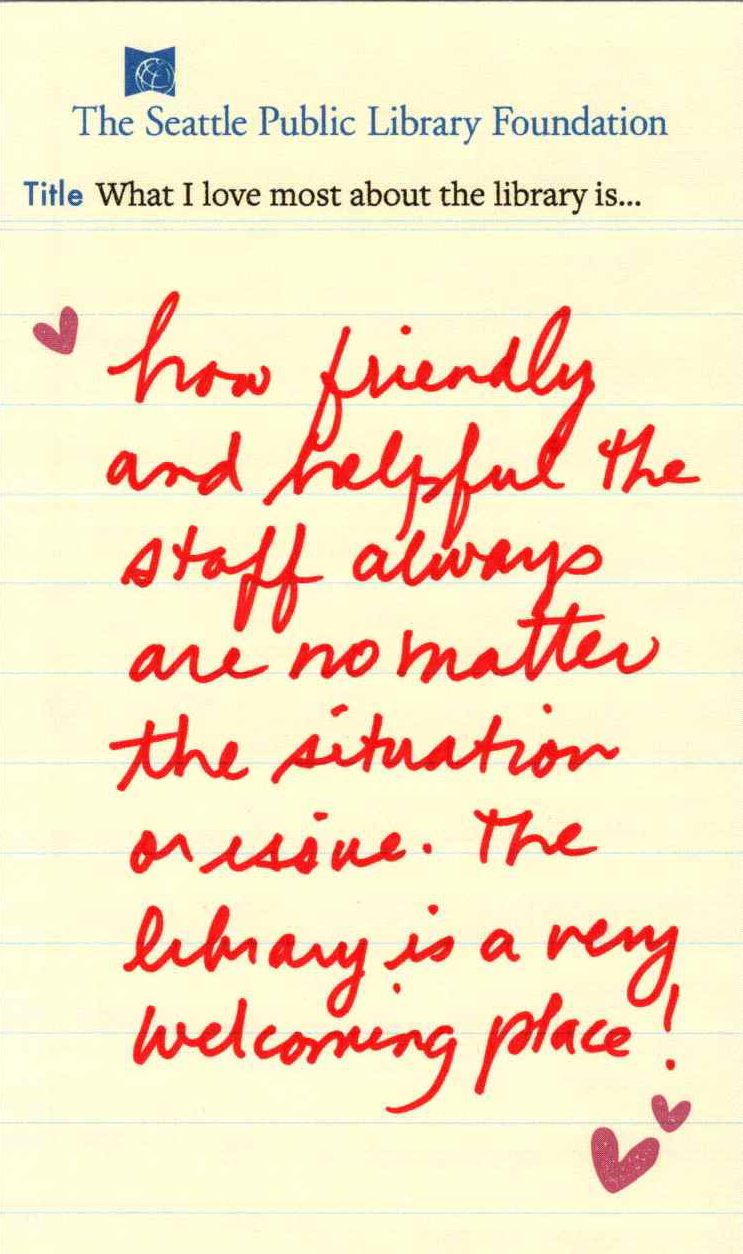 The Seattle Public Library Foundation
Title What I love most about the library is...
how friendly
and helpful the
staff always
are no matter
the situation
or issue. The
library is a very
welcoming place!